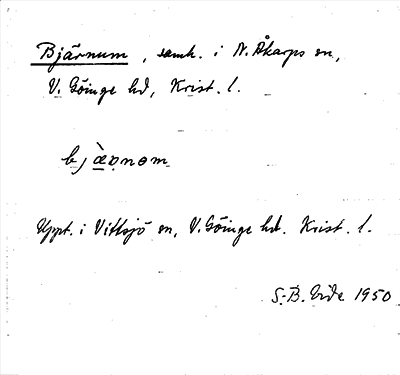 Bjärnum, samh. i N. Åkarps sn,
V. Göinge hd, Krist. l.
bjæ̀ṇnəm
Uppt. i Vittsjö sn, V. Göinge hd. Krist. l.
S.-B. 1950